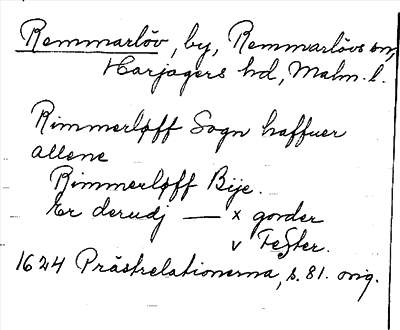 Remmarlöv, by, Remmarlövs sn,
Harjagers hd, Malm. l.
Rimmerløff Sogn haffuer
allene
Rimmerløff Bije.
Er derudj — x gorder
v Fester.
1624 Prästrelationerna, s. 81. orig.